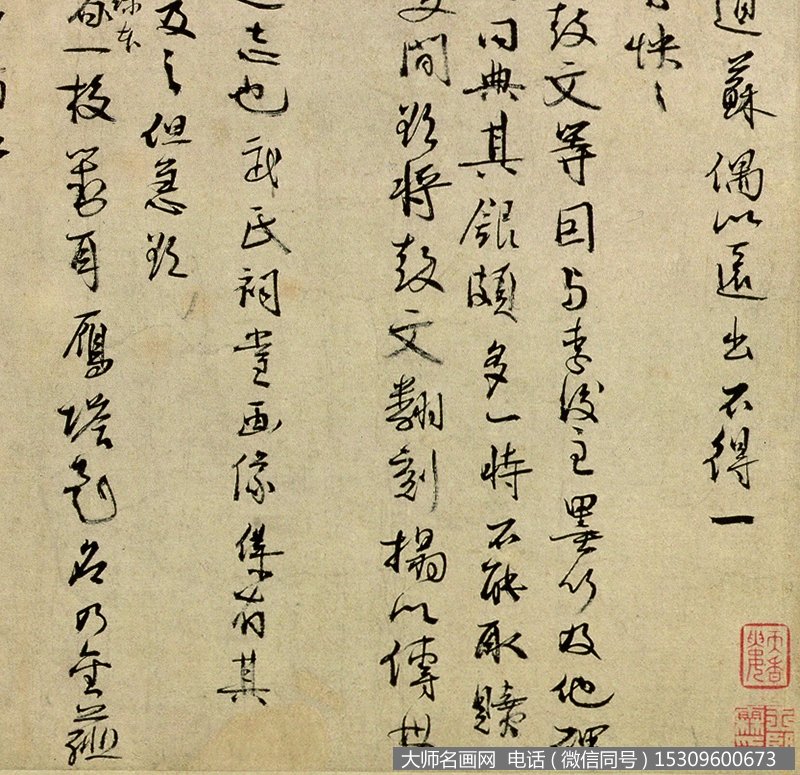 過蘇偶以遠出不得一
快〻
鼓文等回与李後主墨竹及他碑
同典其銀頗多一時不能取贖
間欲將鼓文翻刻搨以傳世
志也武氏祠堂画像僅有其
及之但急欲
一枝耳雁塔題名乃
大师名画网 电话（微信同号）15309600673